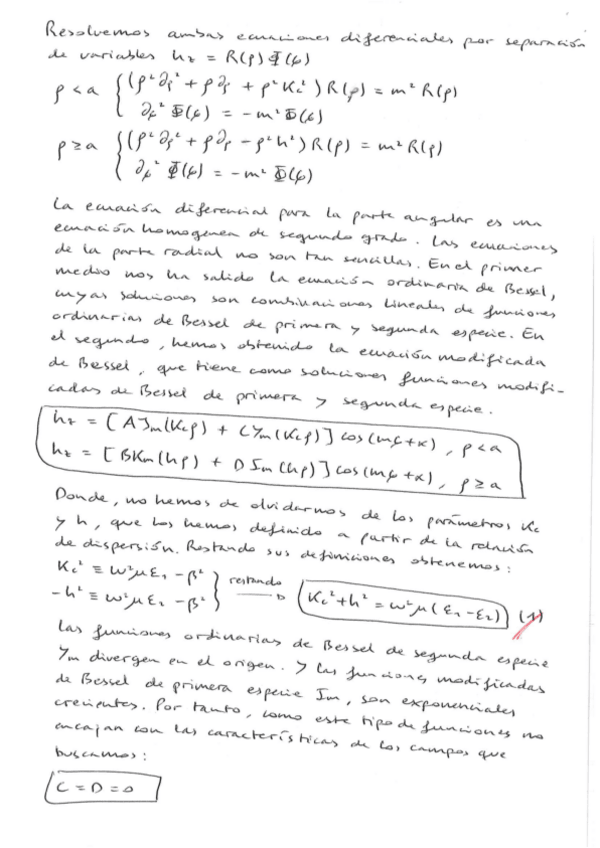 Resolvemos ambas ecuaciones diferenciales por separación
de variables h_z = R(ρ)Φ(φ)
ρ < a { (ρ²∂ρ² + ρ∂ρ + ρ²Kc²)R(ρ) = m²R(ρ)
∂φ²Φ(φ) = -m²Φ(φ)
ρ ≥ a { (ρ²∂ρ² + ρ∂ρ - ρ²h²)R(ρ) = m²R(ρ)
∂φ²Φ(φ) = -m²Φ(φ)
La ecuación diferencial para la parte angular es una
ecuación homogenea de segundo grado. Las ecuaciones
de la parte radial no son tan sencillas. En el primer
medio nos ha salido la ecuación ordinaria de Bessel,
cuyas soluciones son combinaciones lineales de funciones
ordinarias de Bessel de primera y segunda especie. En
el segundo, hemos obtenido la ecuación modificada
de Bessel, que tiene como soluciones funciones modifi-
cadas de Bessel de primera y segunda especie.
h_z = [AJm(Kcρ) + CYm(Kcρ)] cos(mφ+α), ρ < a
h_z = [BKm(hρ) + DIm(hρ)] cos(mφ+α), ρ ≥ a
Donde, no hemos de olvidarnos de los parámetros Kc
y h, que los hemos definido a partir de la relación
de dispersión. Restando sus definiciones obtenemos:
Kc² ≡ ω²με₁ - β²
-h² ≡ ω²με₂ - β² } restando → Kc² + h² = ω²μ(ε₁ - ε₂) (1)
Las funciones ordinarias de Bessel de segunda especie
Ym divergen en el origen. Y las funciones modificadas
de Bessel de primera especie Im, son exponenciales
crecientes. Por tanto, como este tipo de funciones no
encajan con las características de los campos que
buscamos:
C = D = 0